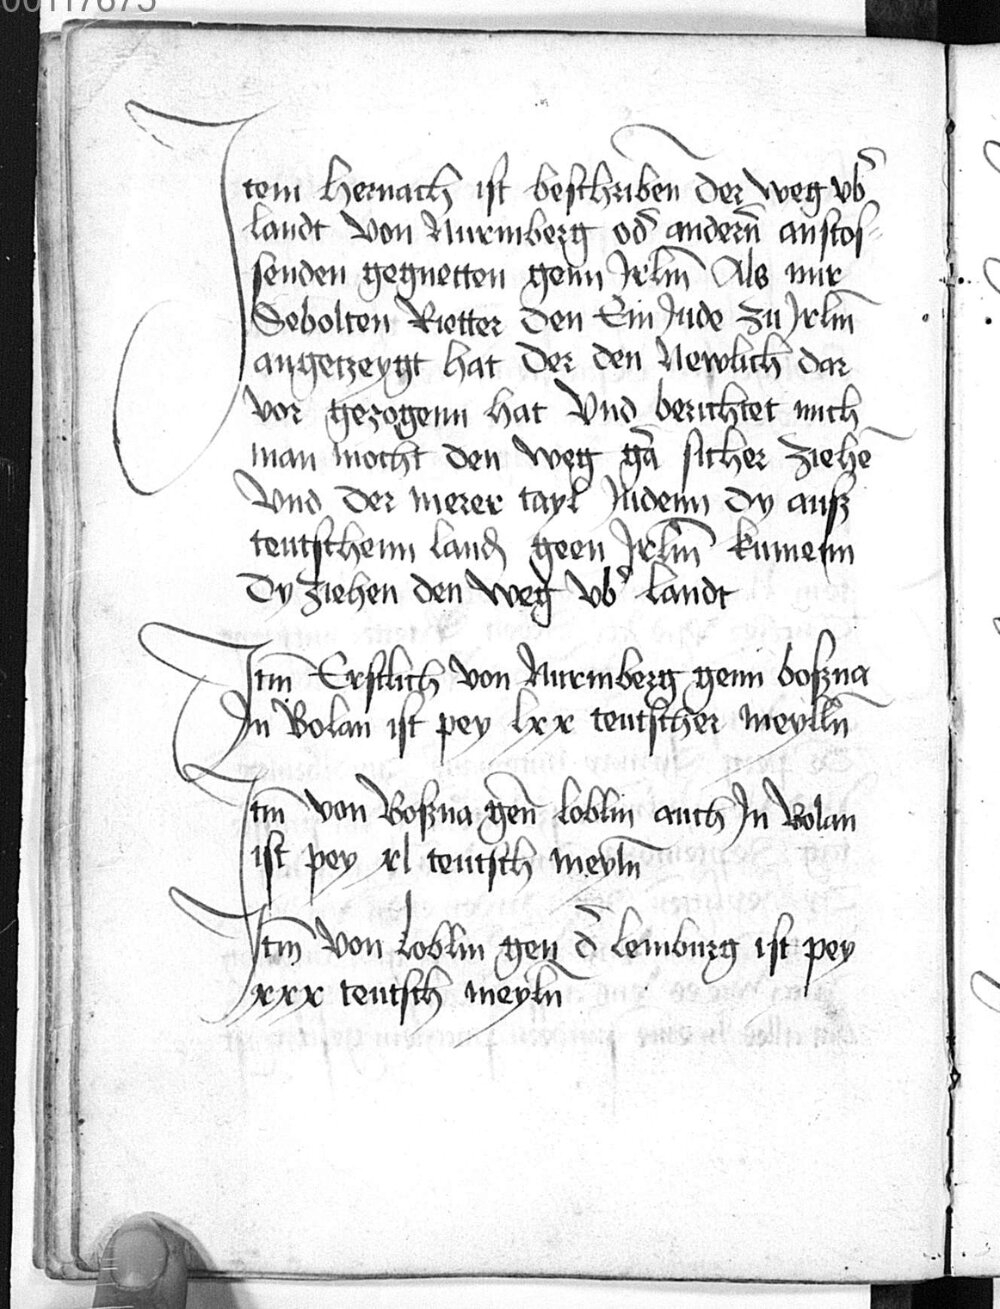 00117675
Item hernach ist beschriben der weg vb̄
landt von Nurmberg od̄ andern̄ anstos-
senden gegnetten genn Jrlm̄ Als mir
Sebolten Rietter den Ein Jude zu Jrlm̄
angetzeygt hat der den Newlich dar
vor gezogenn hat Vnd berichtet mich
man mocht den weg gā sicher ziehē
Vnd der merer tayl Judenn dy auß
teutschenn land geen Jrlm̄ kumenn
Dy ziehen den weg vb̄ landt
Itm̄ Erstlich von Nurmberg genn boßna
In Bolan ist pey lxx teutscher meylln̄
Itm̄ von Boßna gen̄ loblin auch In Bolan
ist pey xl teutsch meyln̄
Itm̄ von loblin gen d̄ lemburg ist pey
xxx teutsch meyln̄